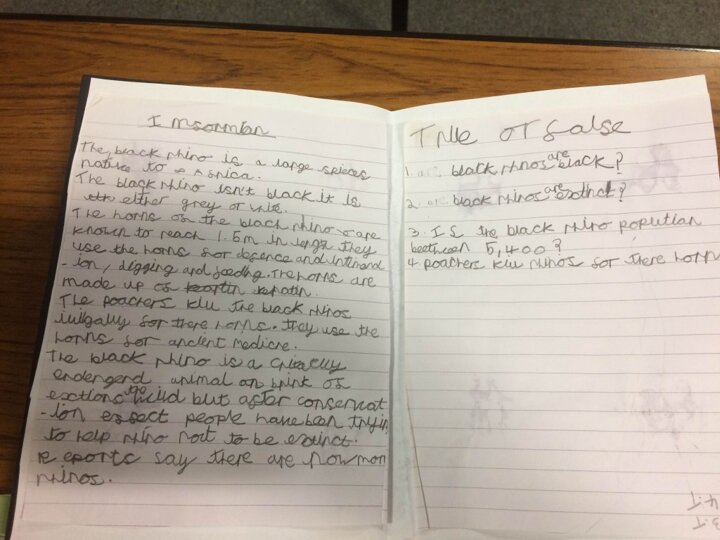 Insormian
The black rhino is a large spieces
native to Asrica.
The black rhino isn't black it is
either grey or wite.
The horns os the black rhino are
known to reach 1.5m in lengh they
use the horns sor desence and intimid
-ion, digging and seeding. The horns are
made up os keartin keratin.
The poachers kill the black rhinos
illigally sor there horns. They use the
horns sor ancient medicne.
The black rhino is a critically
endengerd animal on brink os
exctions the wild but aster conservat
-ion essact people have been tryin
to help rhino not to be exctinct.
Reports say there are now mor
rhinos.
True or salse
1. black rhinos are black?
2. black rhinos are exctinct?
3. Is the black rhino poplution
beetween 5,400?
4 poachers kill rhinos sor there horns